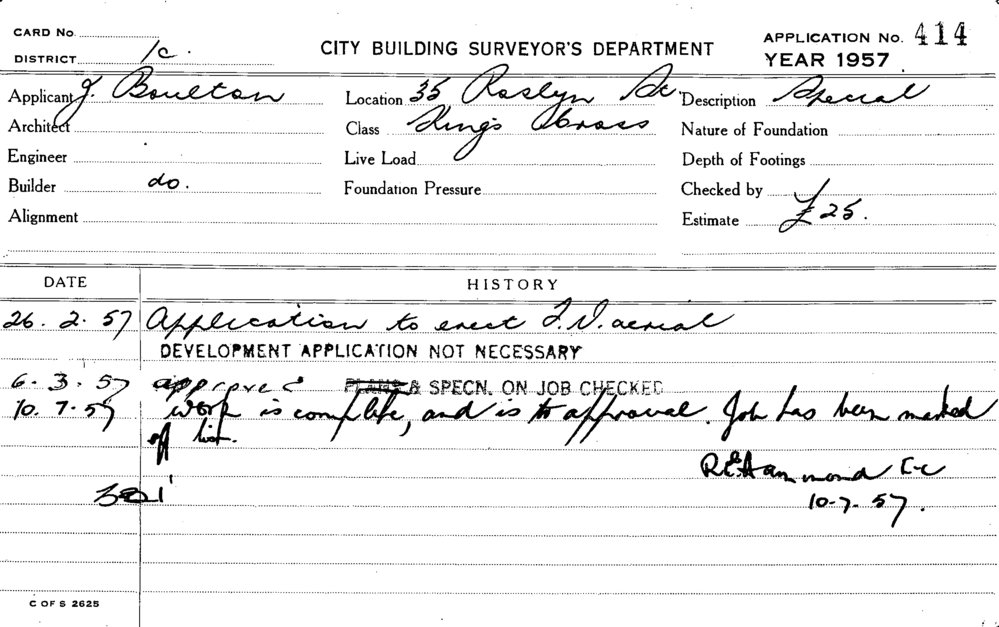 CARD No.
DISTRICT 1c.
CITY BUILDING SURVEYOR'S DEPARTMENT
APPLICATION No. 414
YEAR 1957
Applicant J. Boulton
Location 35 Roslyn St
Description Special
Architect
Class Kings Cross
Nature of Foundation
Engineer
Live Load
Depth of Footings
Builder do.
Foundation Pressure
Checked by
Alignment
Estimate £25.
DATE HISTORY
26. 2. 57 Application to erect T.V. aerial
DEVELOPMENT APPLICATION NOT NECESSARY
6. 3. 57 approved PLANS & SPECN. ON JOB CHECKED
10. 7. 57 Work is complete, and is to approval. Job has been marked
off list.
R.E. Hammond
10-7-57.
C OF S 2625